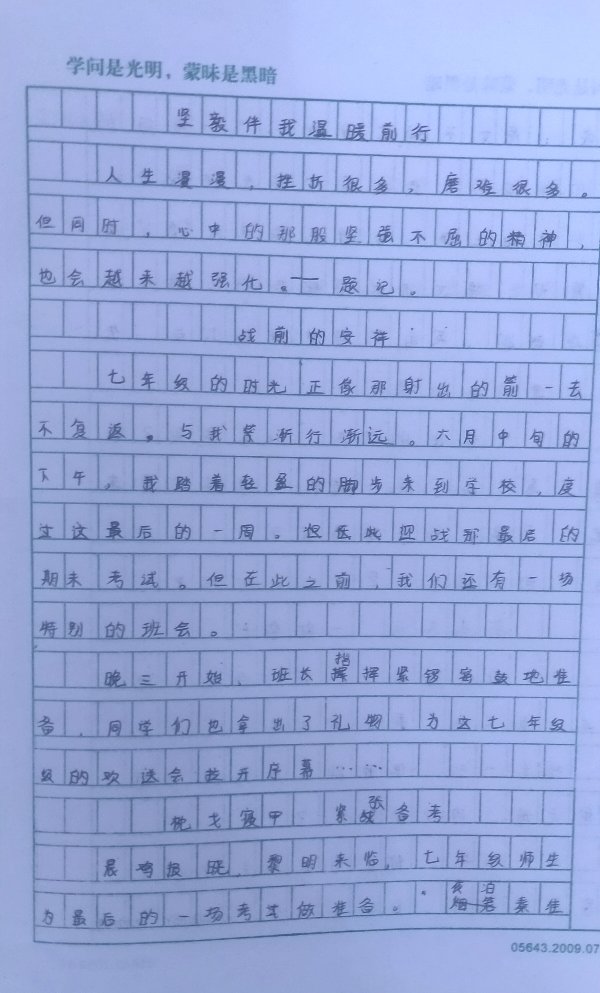 学问是光明，蒙昧是黑暗
坚毅伴我温暖前行
人生漫漫，挫折很多，磨难很多。
但同时，心中的那股坚强不屈的精神，
也会越来越强化。——题记。
战前的安祥
七年级的时光正像那射出的箭一去
不复返。与我渐行渐远。六月中旬的
下午，我踏着轻盈的脚步来到学校，度
过这最后的一周。但 此迎战那最后的
期末考试。但在此之前，我们还有一场
特别的班会。
晚三开始，班长指挥紧锣密鼓地准
备，同学们也拿出了礼物，为这七年级
级的欢送会拉开序幕……
枕戈寝甲 紧张备考
晨鸣报晓，黎明来临，七年级师生
为最后的一场考试做准备。
05643.2009.07